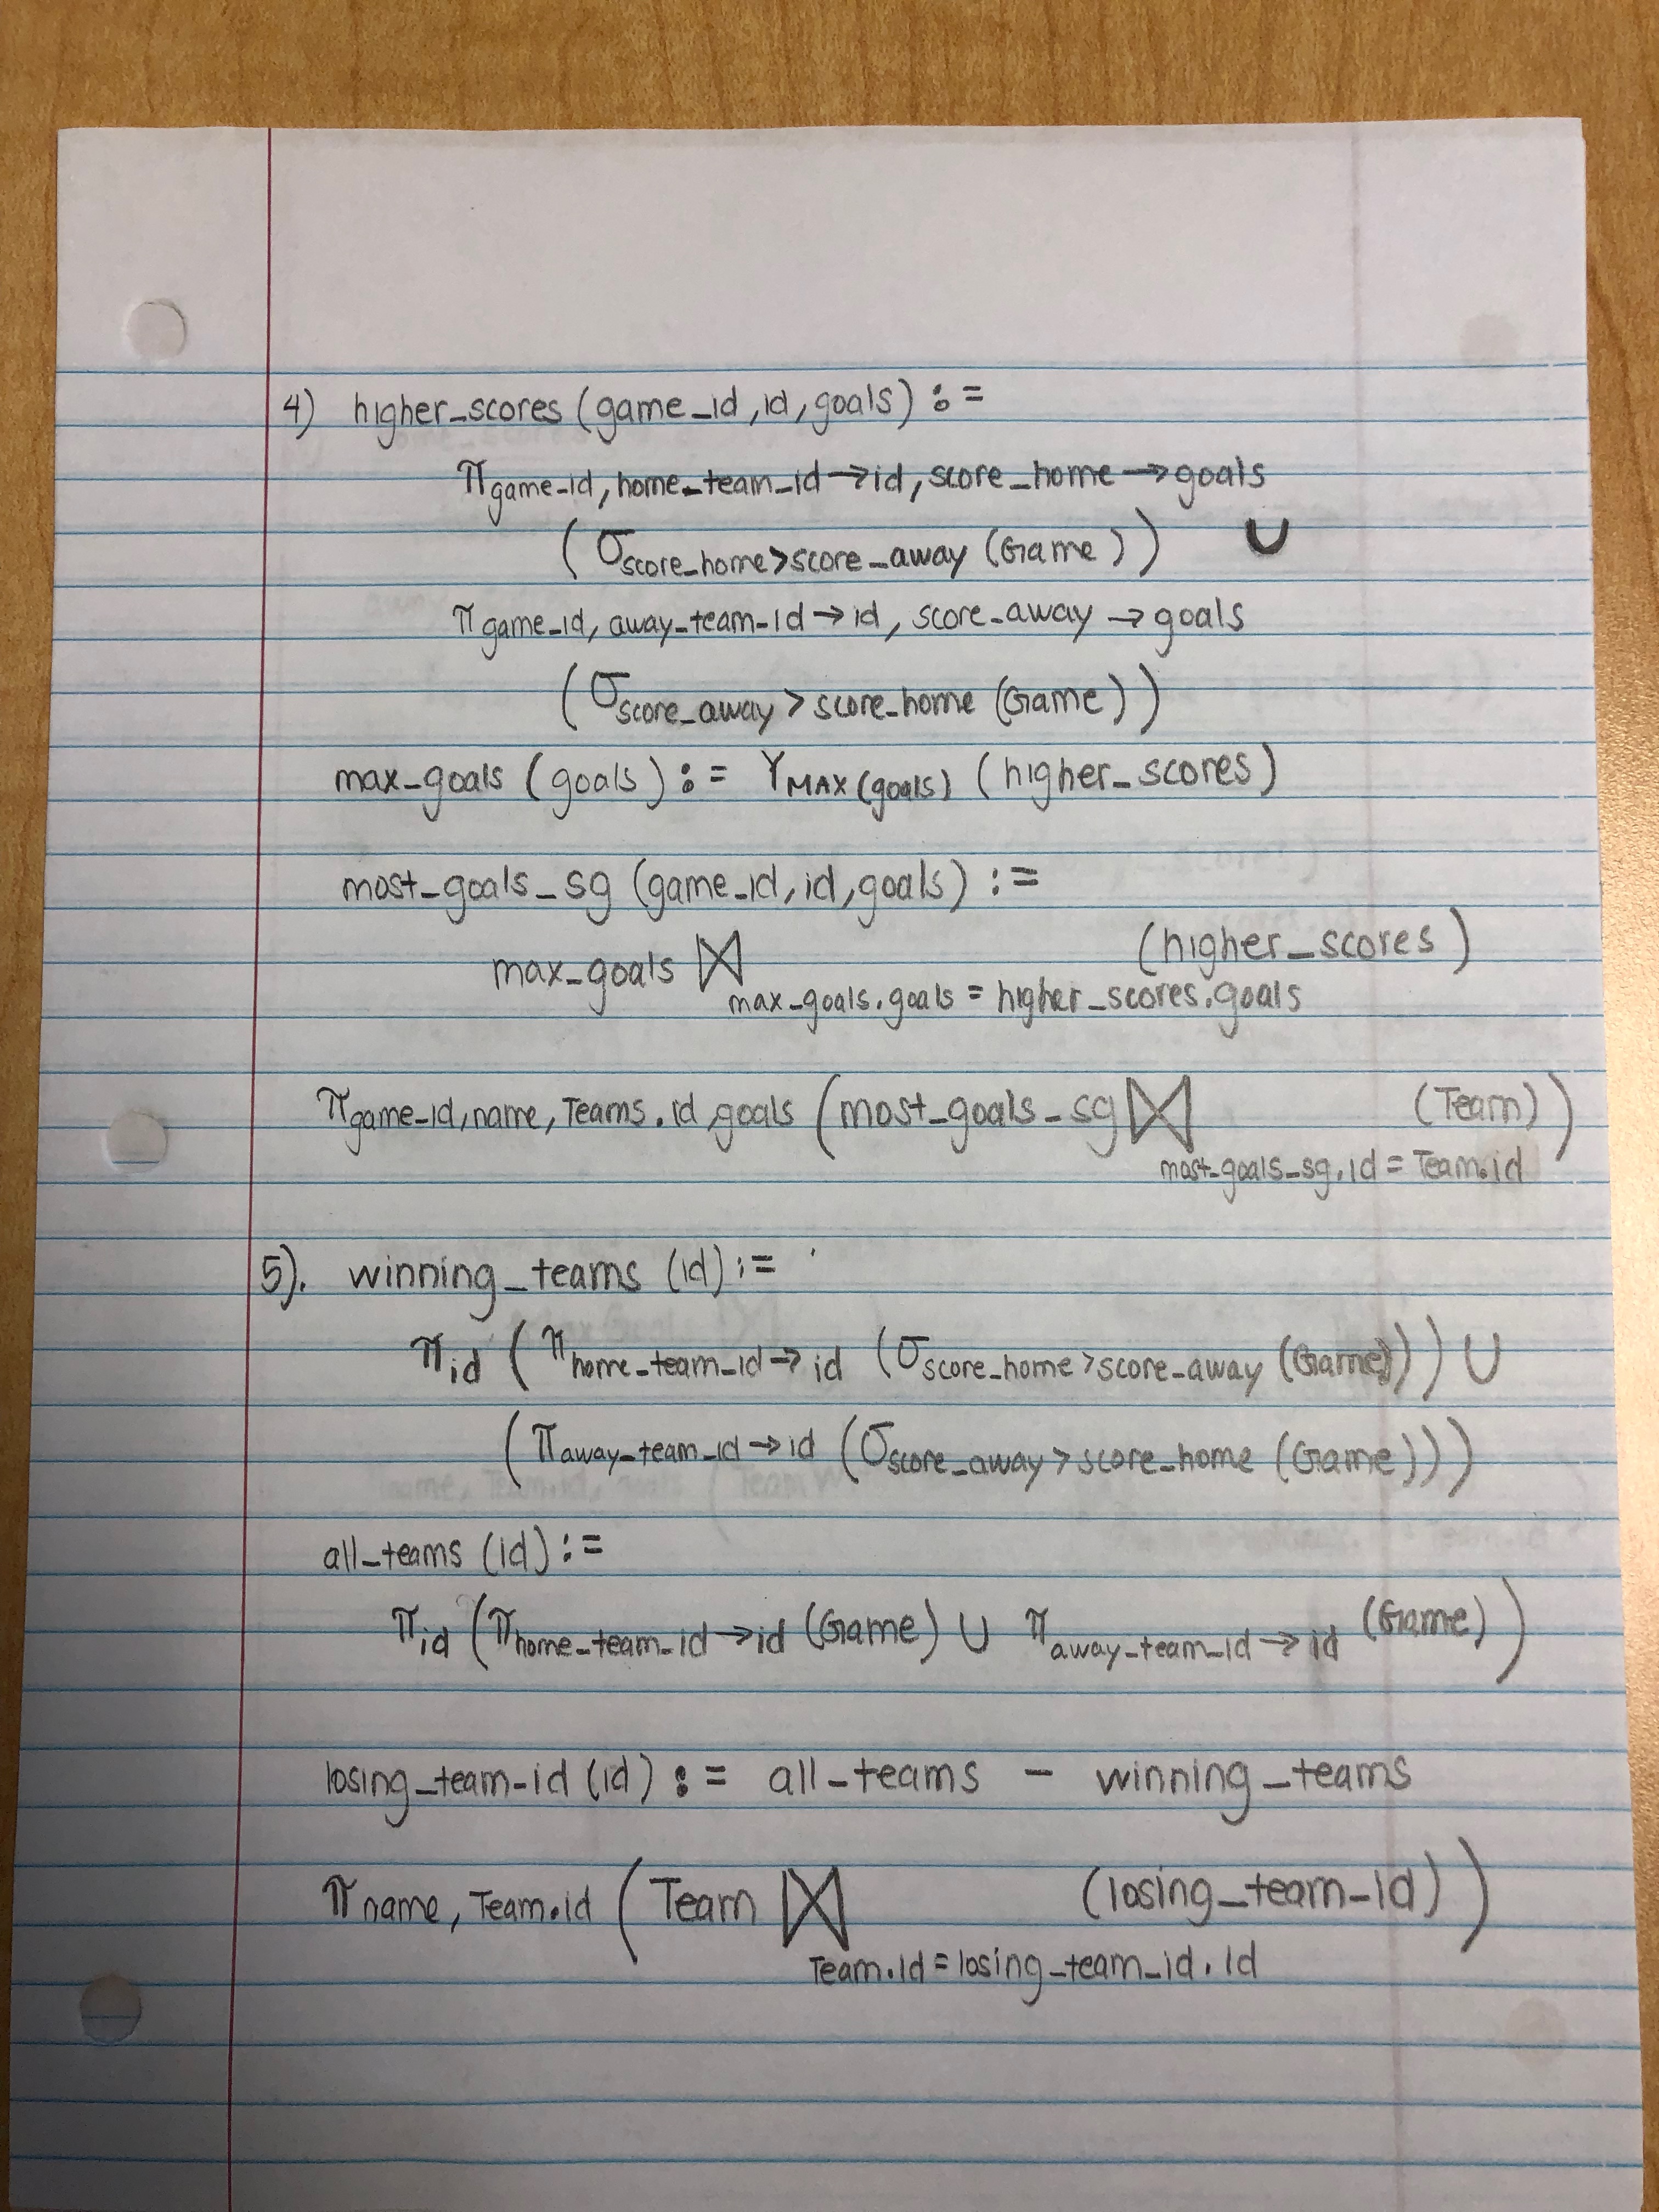 4) higher_scores (game_id, id, goals) :=
π game_id, home_team_id → id, score_home → goals
( σ score_home > score_away (Game) ) ∪
π game_id, away_team_id → id, score_away → goals
( σ score_away > score_home (Game) )
max_goals (goals) := γ MAX(goals) (higher_scores)
most_goals_sg (game_id, id, goals) :=
max_goals ⋈ max_goals.goals = higher_scores.goals (higher_scores)
π game_id, name, Teams.id, goals ( most_goals_sg ⋈ most_goals_sg.id = Team.id (Team) )
5). winning_teams (id) :=
π id ( π home_team_id → id ( σ score_home > score_away (Game) ) ) ∪
( π away_team_id → id ( σ score_away > score_home (Game) ) )
all_teams (id) :=
π id ( π home_team_id → id (Game) ∪ π away_team_id → id (Game) )
losing_team_id (id) := all_teams - winning_teams
π name, Team.id ( Team ⋈ Team.id = losing_team_id.id (losing_team_id) )